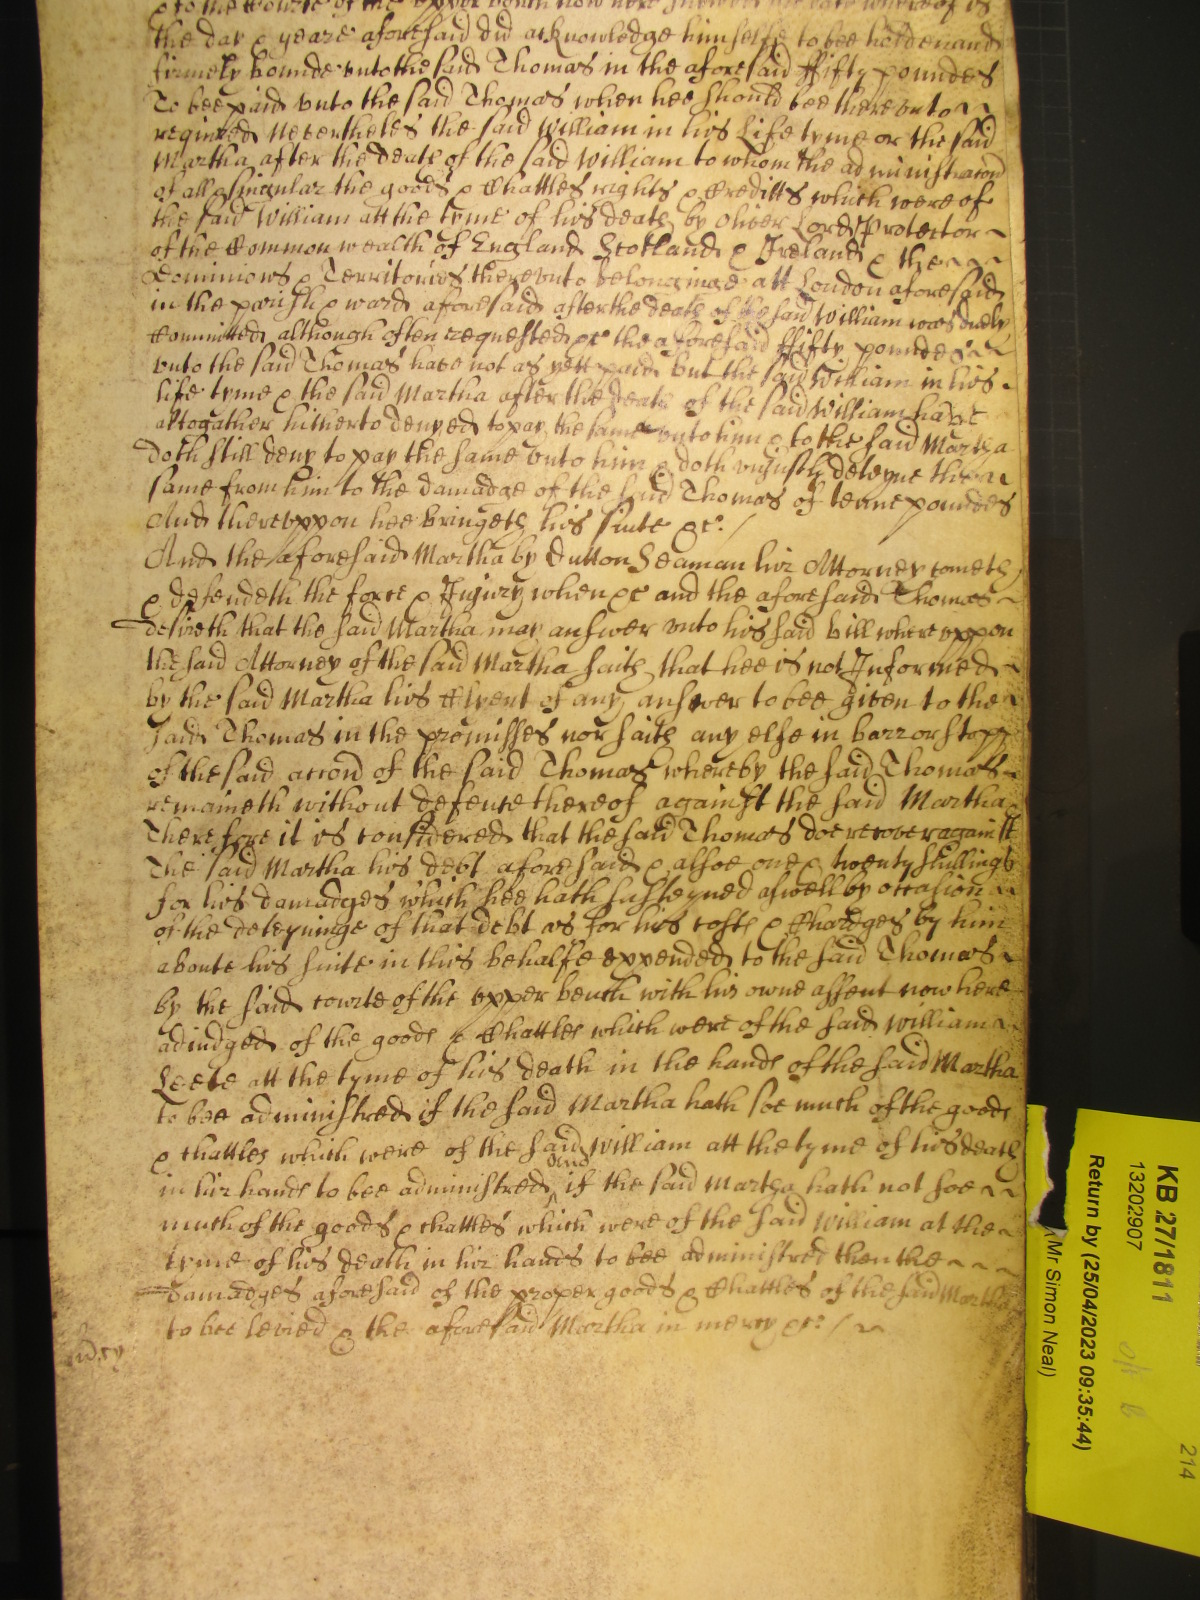 to the Courte of the upper bench now here shewed the date whereof is
the day & yeare aforesaid did acknowledge himselfe to bee holden and
firmely bounde unto the said Thomas in the aforesaid ffifty poundes
To bee paid unto the said Thomas when hee should bee thereunto
required Neverthelès the said William in his Life tyme or the said
Martha after the death of the said William to whom the administracon
of all & singular the goods & Chattles rights & Creditts which were of
the said William att the tyme of his death by Oliver Lord Protector
of the Common wealth of England Scotland & Ireland & the
Dominions & Territories thereunto belonginge att London aforesaid
in the parish & ward aforesaid after the death of the said William was duely
Committed although often requested &c the aforesaid ffifty poundes
unto the said Thomas have not as yett paid but the said William in his
life tyme & the said Martha after the death of the said William have
altogather hitherto denyed to pay the same unto him & to the said Martha
doth still deny to pay the same unto him & doth unjustly deteyne the
same from him to the damadge of the said Thomas of tenne poundes
And thereuppon hee bringeth his suite &c. /
And the aforesaid Martha by Dutton Seaman hir Attorney cometh
& defendeth the force & Injury when &c and the aforesaid Thomas
desireth that the said Martha may answer unto his said bill whereuppon
the said Attorney of the said Martha saith that hee is not Informed
by the said Martha his Clyent of any answer to bee given to the
said Thomas in the premisses nor saith any else in barr or stopp
of the said accon of the said Thomas whereby the said Thomas
remaineth without defence thereof against the said Martha
Therefore it is considered that the said Thomas doe recover against
The said Martha his debt aforesaid & alsoe one & twenty shillings
for his damadges which hee hath susteyned aswell by occasion
of the deteyninge of that debt as for his costs & Chardges by him
aboute his suite in this behalfe expended to the said Thomas
by the said courte of the upper bench with his owne assent now here
adjudged of the goods & Chattles which were of the said William
Leete att the tyme of his death in the hands of the said Martha
to bee administred if the said Martha hath soe much of the goods
& chattles which were of the said William att the tyme of his death
in hir hands to bee administred and if the said Martha hath not soe
much of the goods & chattles which were of the said William at the
tyme of his death in hir hands to bee administred then the
damadges aforesaid of the proper goods & Chattles of the said Martha
to bee levied & the aforesaid Martha in mercy &c. /
KB 27/1811
13202907
Return by (25/04/2023 09:35:44)
(Mr Simon Neal)
214